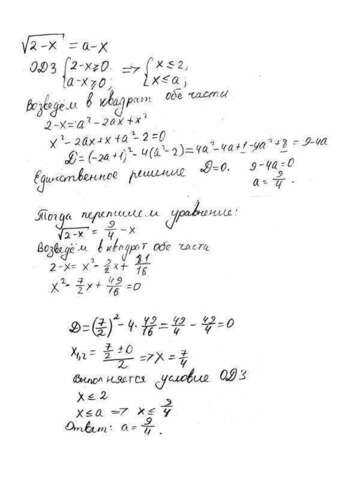 √2-x = a-x
ОДЗ {2-x≥0 a-x≥0 => {x≤2, x≤a,
Возведём в квадрат обе части
2-x=a²-2ax+x²
x²-2ax+x+a²-2=0
D=(-2a+1)²-4(a²-2)=4a²-4a+1-4a²+8=9-4a
Единственное решение D=0. 9-4a=0
a=9/4.
Тогда перепишем уравнение:
√2-x = 9/4-x
Возведём в квадрат обе части
2-x= x²-9/2x+81/16
x²-7/2x+49/16=0
D=(7/2)²-4·49/16=49/4-49/4=0
x₁,₂=(7/2±0)/2=>x=7/4
Выполняется условие ОДЗ
x≤2
x≤a => x≤9/4
Ответ: a=9/4.